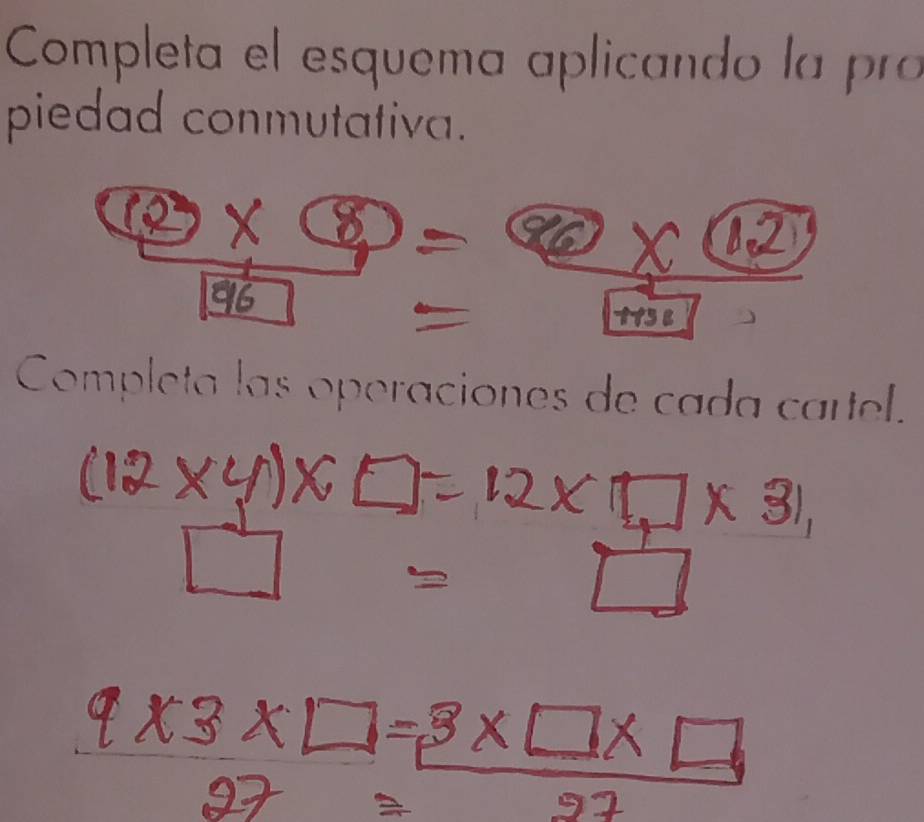 Completa el esquema aplicando la pro
piedad conmutativa.
12 x 8 = 96 x 12
96 =
Completa las operaciones de cada cartel.
(12 x 4) x □ = 12 x □ x 3
□ = □
9 x 3 x □ = 3 x □ x □
27 = 27